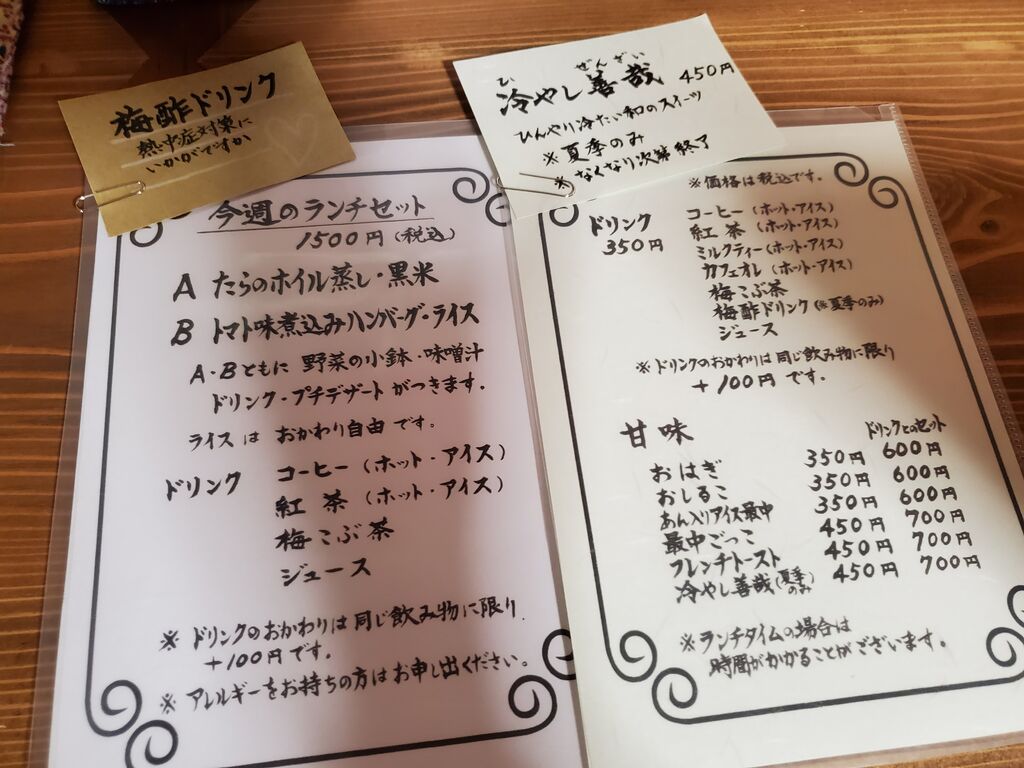 梅酢ドリンク
熱中症対策に
いかがですか
今週のランチセット
1500円(税込)
A たらのホイル蒸し・黒米
B トマト味煮込みハンバーグ・ライス
A・Bともに 野菜の小鉢・味噌汁
ドリンク・プチデザートがつきます。
ライスは おかわり自由です。
ドリンク コーヒー(ホット・アイス)
紅茶(ホット・アイス)
梅こぶ茶
ジュース
※ ドリンクのおかわりは同じ飲み物に限り
+100円です。
※ アレルギーをお持ちの方はお申し出ください。
ひ ぜんざい
冷やし善哉 450円
ひんやり冷たい和のスイーツ
※夏季のみ
※なくなり次第終了
※価格は税込です。
ドリンク コーヒー(ホット・アイス)
350円 紅茶(ホット・アイス)
ミルクティー(ホット・アイス)
カフェオレ(ホット・アイス)
梅こぶ茶
梅酢ドリンク(※夏季のみ)
ジュース
※ドリンクのおかわりは同じ飲み物に限り
+100円です。
甘味 ドリンクとのセット
おはぎ 350円 600円
おしるこ 350円 600円
あん入りアイス最中 350円 600円
最中ごっこ 450円 700円
フレンチトースト 450円 700円
冷やし善哉(夏季のみ) 450円 700円
※ランチタイムの場合は
時間がかかることがございます。